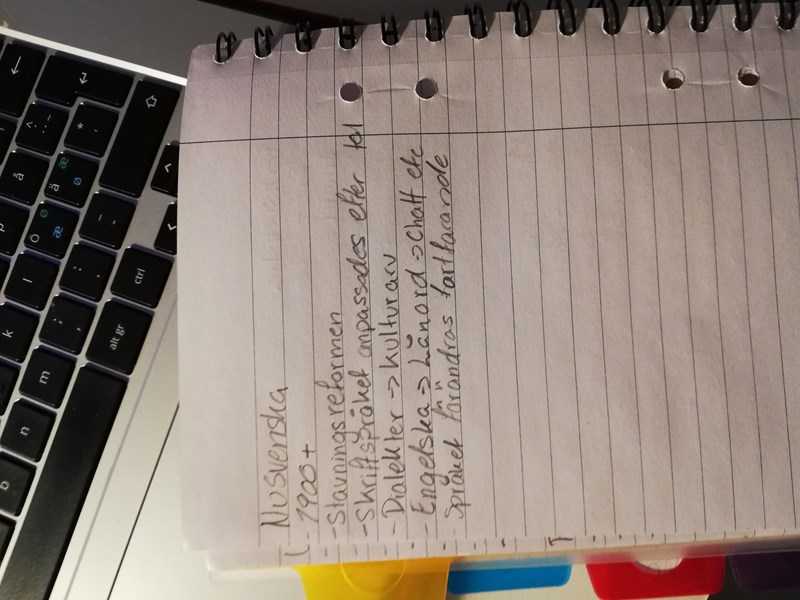 Nusvenska
1900+
- Stavningsreformen
- Skriftspråket anpassades efter tal
- Dialekter -> Kulturarv
- Engelska -> Lånord -> Chatt etc
- Språket förändras fortfarande
ctrl
alt gr
å
ä
ö
æ
ø
p
l
k
m
n
b